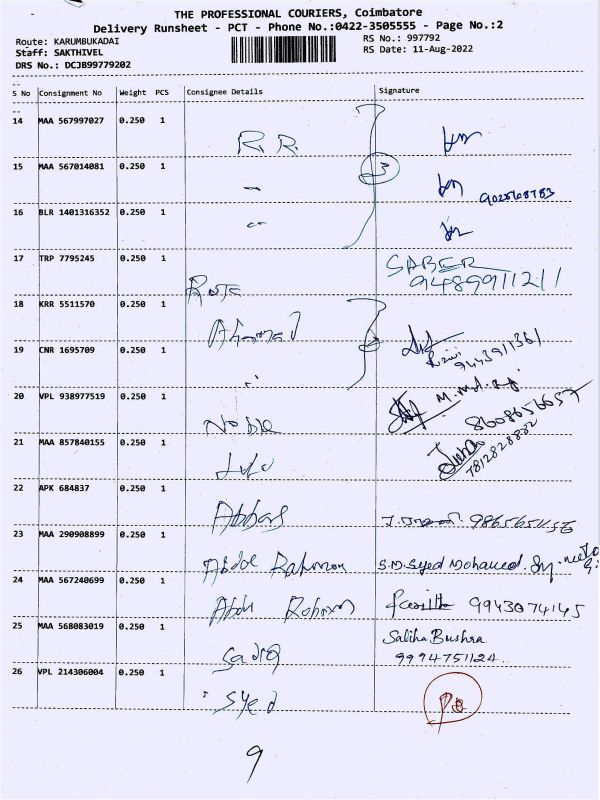 THE PROFESSIONAL COURIERS, Coimbatore
Delivery Runsheet - PCT - Phone No.:0422-3505555 - Page No.:2
Route: KARUMBUKADAI RS No.: 997792
Staff: SAKTHIVEL RS Date: 11-Aug-2022
DRS No.: DCJB99779202
S No Consignment No Weight PCS Consignee Details Signature
14 MAA 567997027 0.250 1 R.R.
15 MAA 567014081 0.250 1 3
16 BLR 1401316352 0.250 1
17 TRP 7795245 0.250 1 Rose SABER 9489911211
18 KRR 5511570 0.250 1 Ahamed
19 CNR 1695709 0.250 1 9443911361
20 VPL 938977519 0.250 1 Noble 8608656657
21 MAA 857840155 0.250 1 7812828882
22 APK 684837 0.250 1 Abbas
23 MAA 290908899 0.250 1 Abdul Rahman S.M.Syed Mohamed.
24 MAA 567240699 0.250 1 Abdu Rahman 9943074145
25 MAA 568083019 0.250 1 Sadiq Saliha Bushra
9994751124
26 VPL 214306004 0.250 1 Syed
9